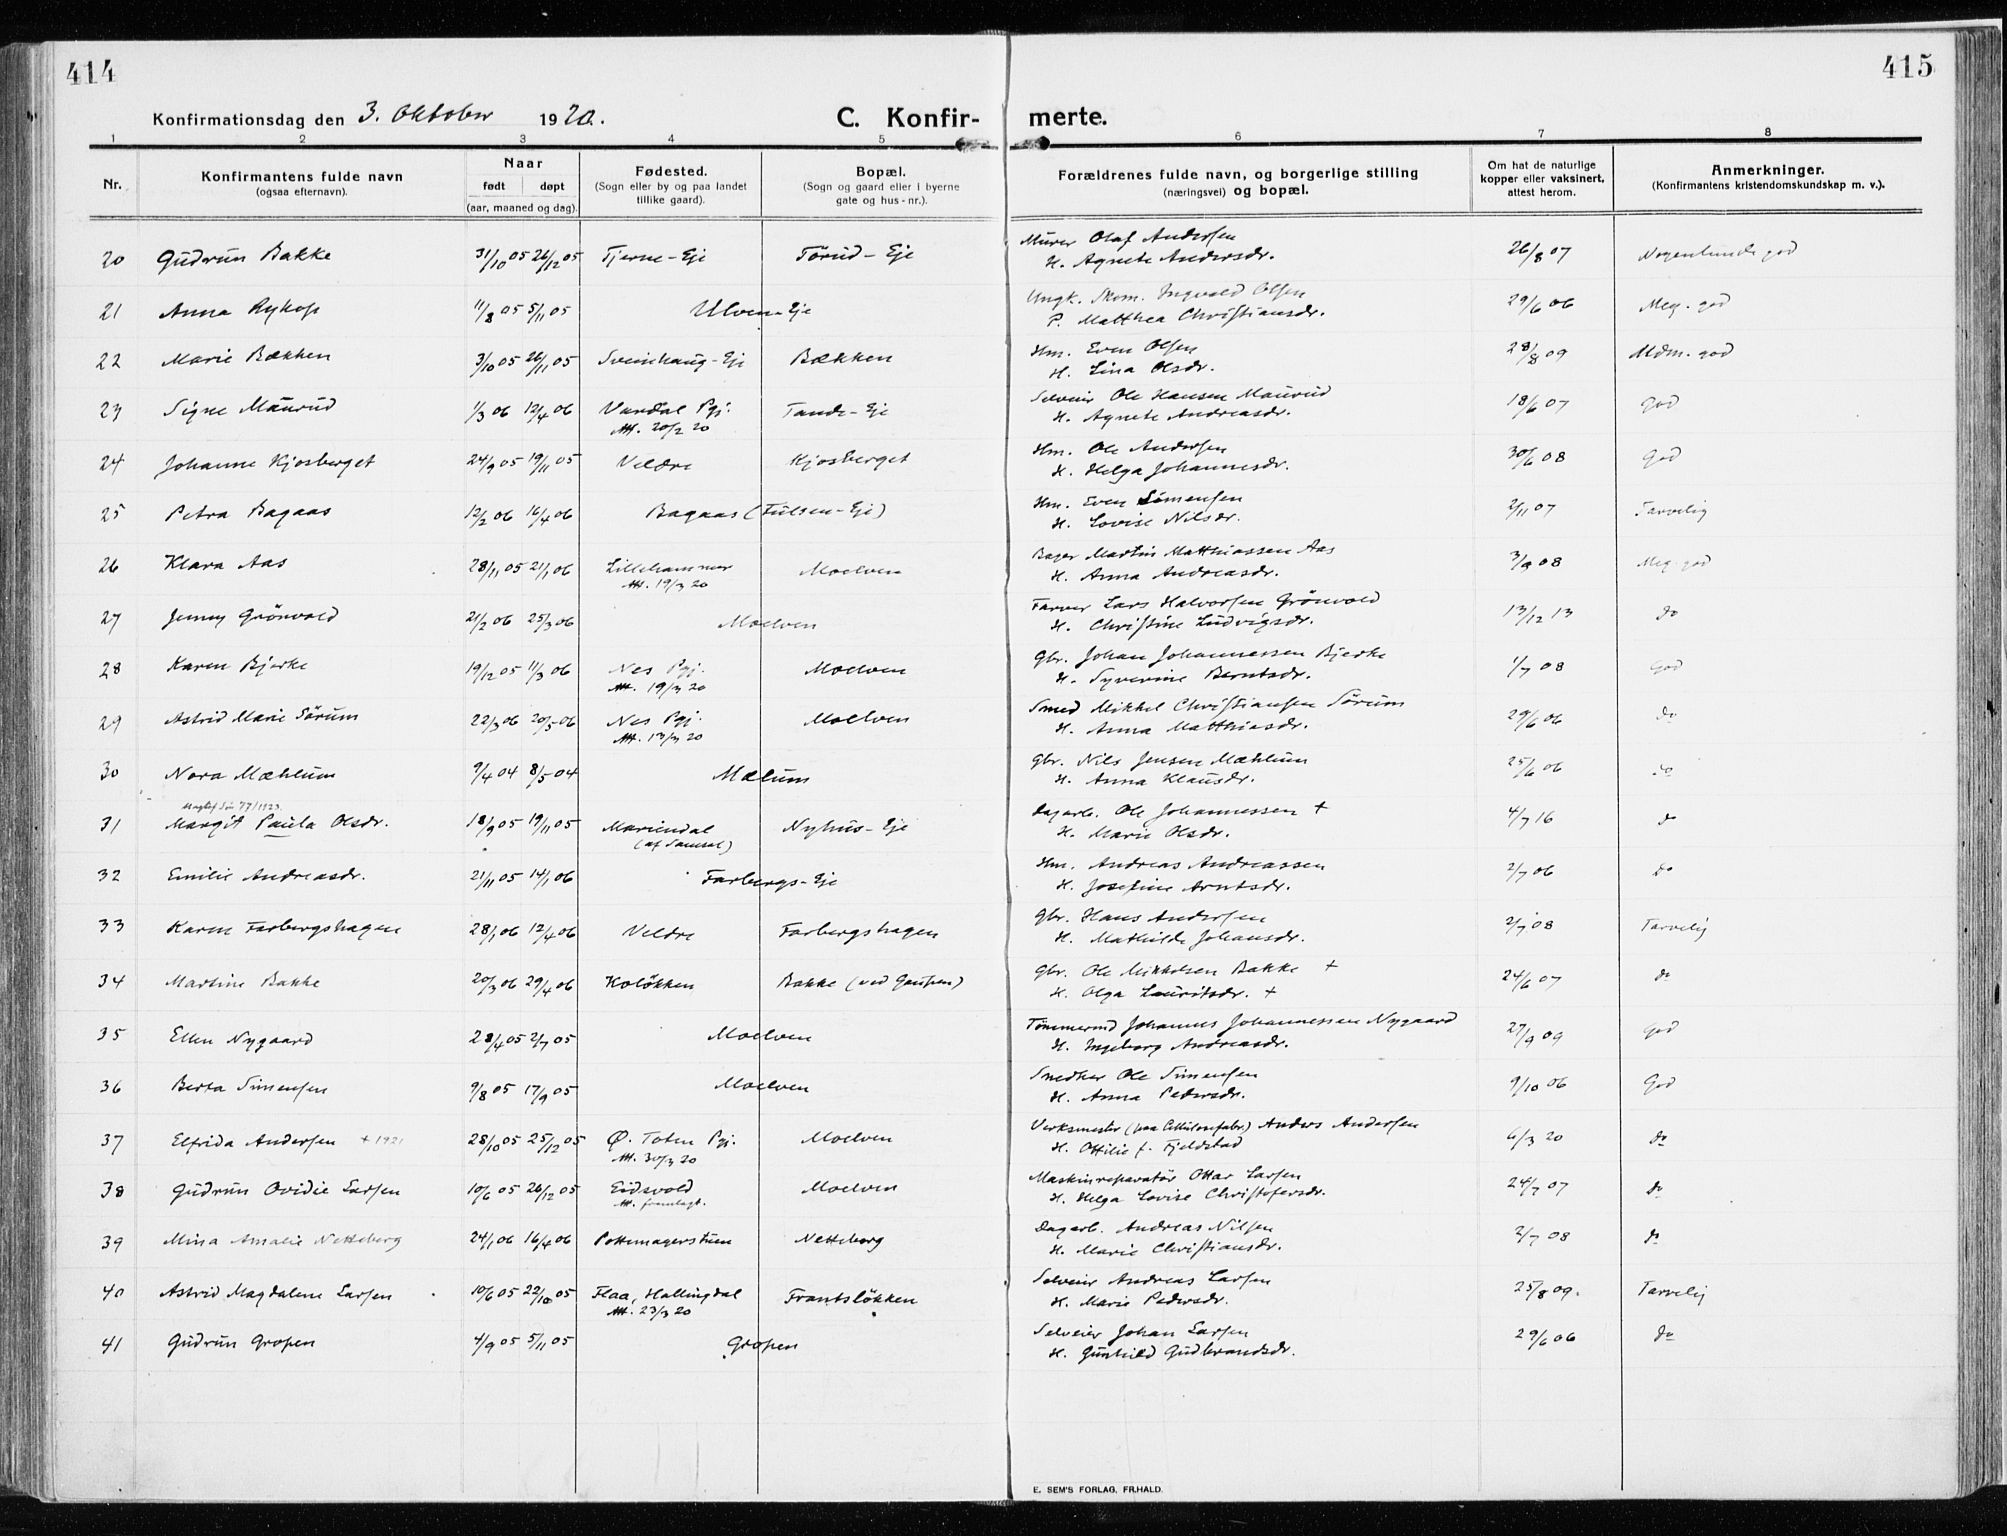 414
415
Konfirmationsdag den 3. Oktober 1920.
C. Konfir- merte.
1 2 3 4 5 6 7 8
Nr.
Konfirmantens fulde navn
(ogsaa efternavn).
Naar
født døpt
(aar, maaned og dag).
Fødested.
(Sogn eller by og paa landet
tillike gaard).
Bopæl.
(Sogn og gaard eller i byerne
gate og hus-nr.).
Forældrenes fulde navn, og borgerlige stilling
(næringsvei) og bopæl.
Om hat de naturlige
kopper eller vaksinert,
attest herom.
Anmerkninger.
(Konfirmantens kristendomskundskap m. v.).
20 Gudrun Bakke 31/10 05 26/12 05 Tjerne-Eje Törud-Eje Murer Olaf Andersen 26/8 07 Nogenlunde god
H. Agnete Andersdr.
21 Anna Rykop 11/8 05 5/11 05 Ulven-Eje Ungk. Skom. Ingvald Olsen 29/6 06 Meg. god
P. Matthea Christiansdr.
22 Marie Bækken 3/10 05 26/11 05 Sveinhaug-Eje Bækken Hm. Even Olsen 28/8 09 Mdm. god
H. Lina Olsdr.
23 Signe Maurud 1/3 06 12/4 06 Vardal Pgj. Tande-Eje Selveier Ole Hansen Maurud 18/6 07 God
Att. 20/2 20 H. Agnete Andreasdr.
24 Johanne Kjosberget 24/9 05 19/11 05 Veldre Kjosberget Hm. Ole Andersen 30/6 08 God
H. Helga Johannesdr.
25 Petra Bagaas 12/2 06 16/4 06 Bagaas (Fulsen-Eje) Hm. Even Simensen 2/11 07 Tarvelig
H. Lovise Nilsdr.
26 Klara Aas 28/11 05 21/1 06 Lillehammer Moelven Bager Martin Matthiassen Aas 3/9 08 Meg. god
Att. 19/3 20 H. Anna Andreasdr.
27 Jenny Grönvold 21/2 06 25/3 06 Moelven Farver Lars Halvorsen Grönvold 13/12 13 do
H. Christine Ludvigsdr.
28 Karen Bjerke 19/12 05 11/3 06 Nes Pgj. Moelven Gbr. Johan Johannessen Bjerke 1/7 08 God
Att. 19/3 20 H. Syverine Berntsdr.
29 Astrid Marie Sörum 22/3 06 20/5 06 Nes Pgj. Moelven Smed Mikkel Christiansen Sörum 29/6 06 do
Att. 13/3 20 H. Anna Matthiasdr.
30 Nora Mæhlum 9/4 04 8/5 04 Mælum Gbr. Nils Jensen Mæhlum 25/6 06 do
H. Anna Klausdr.
31 Margit Paula Olsdr. 18/9 05 19/11 05 Mariendal Nyhus-Eje Dagarb. Ole Johannessen + 4/7 16 do
(af Samsal) H. Marie Olsdr.
32 Emilie Andreasdr. 21/11 05 14/1 06 Farbergs-Eje Hm. Andreas Andreassen 2/7 06 do
H. Josefine Arntsdr.
33 Karen Farbergshagen 28/1 06 12/4 06 Veldre Farbergshagen Gbr. Hans Andersen 2/7 08 Tarvelig
H. Mathilde Johansdr.
34 Martine Bakke 20/3 06 29/4 06 Kolökken Bakke (ved Gaupen) Gbr. Ole Mikkelsen Bakke + 24/6 07 do
H. Olga Lauritsdr. +
35 Ellen Nygaard 28/4 05 2/7 05 Moelven Tömmermd Johannes Johannessen Nygaard 27/9 09 God
H. Ingeborg Andreasdr.
36 Berta Simensen 9/8 05 17/9 05 Moelven Snedker Ole Simensen 9/10 06 God
H. Anna Pedersdr.
37 Elfrida Andersen + 1921 28/10 05 25/12 05 Ø. Toten Pgj. Moelven Verksmester Anders Andersen 6/3 20 do
Att. 30/3 20 H. Ottilie f. Fjeldstad
38 Gudrun Ovidie Larsen 10/6 05 26/12 05 Eidsvold Moelven Maskinreparatör Ottar Larsen 24/7 07 do
Att. fremlagt. H. Helga Lovise Christofersdr.
39 Mina Amalie Netteberg 24/1 06 16/4 06 Pottemagerstuen Netteberg Dagarb. Andreas Nilsen 2/7 08 do
H. Marie Christiansdr.
40 Astrid Magdalene Larsen 10/6 05 22/10 05 Flaa, Hallingdal Frantslökken Selveier Andreas Larsen 25/8 09. Tarvelig
Att. 23/3 20 H. Marie Pedersdr.
41 Gudrun Gropen 4/9 05 5/11 05 Gropen Selveier Johan Larsen 29/6 06 do
H. Gunhild Gudbrandsdr.
E. SEM'S FORLAG, FR.HALD.